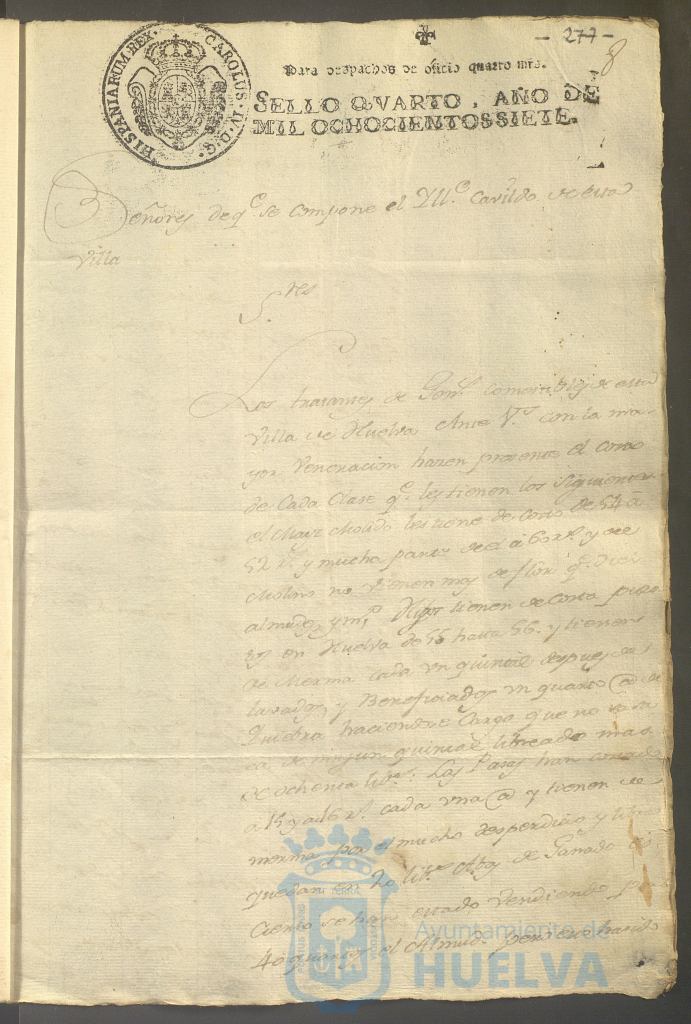 - 277 -
8
HISPANIARUM REX. CAROLUS. IV. D. G.
Para despachos de oficio quatro mrs.
SELLO QVARTO, AÑO DE
MIL OCHOCIENTOS SIETE.
Señores de q.e se compone el Yll.e Cavildo de esta
Villa
S.res
Los tratantes de Gen.s comestibles de esta
Villa de Huelva Ante V.s con la ma-
yor Veneracion hazen presente el costo
de Cada Clase q.e les tienen los Siguientes
el Maiz Molido les tiene de costo de 54 a
52 r.s y mucha parte de el a 60 r.s y de
Molino no tienen mas de flor q.e Diez
almudes y m.o Higos tienen de Costa puestos
en Huelva de 55 hasta 56. y tienen
de Merma cada un quintal despues de
labados, y Beneficiados un quarto @ de
Quiebra haciendose Cargo que no
de ningun quintal libreado mas
de ochenta lib.s Las Pasas han costado
a 15 y a 16 r.s cada una @ y tienen de
merma por el mucho desperdicio y
quedan en 20 lib.s de Ganado
Ciento se han estado Vendiendo
40 quartos el Almud.
Ayuntamiento de
HUELVA